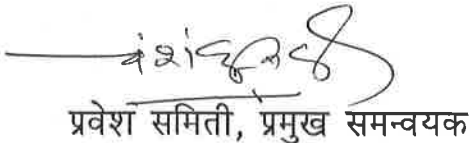 प्रवेश समिति, प्रमुख समन्वयक